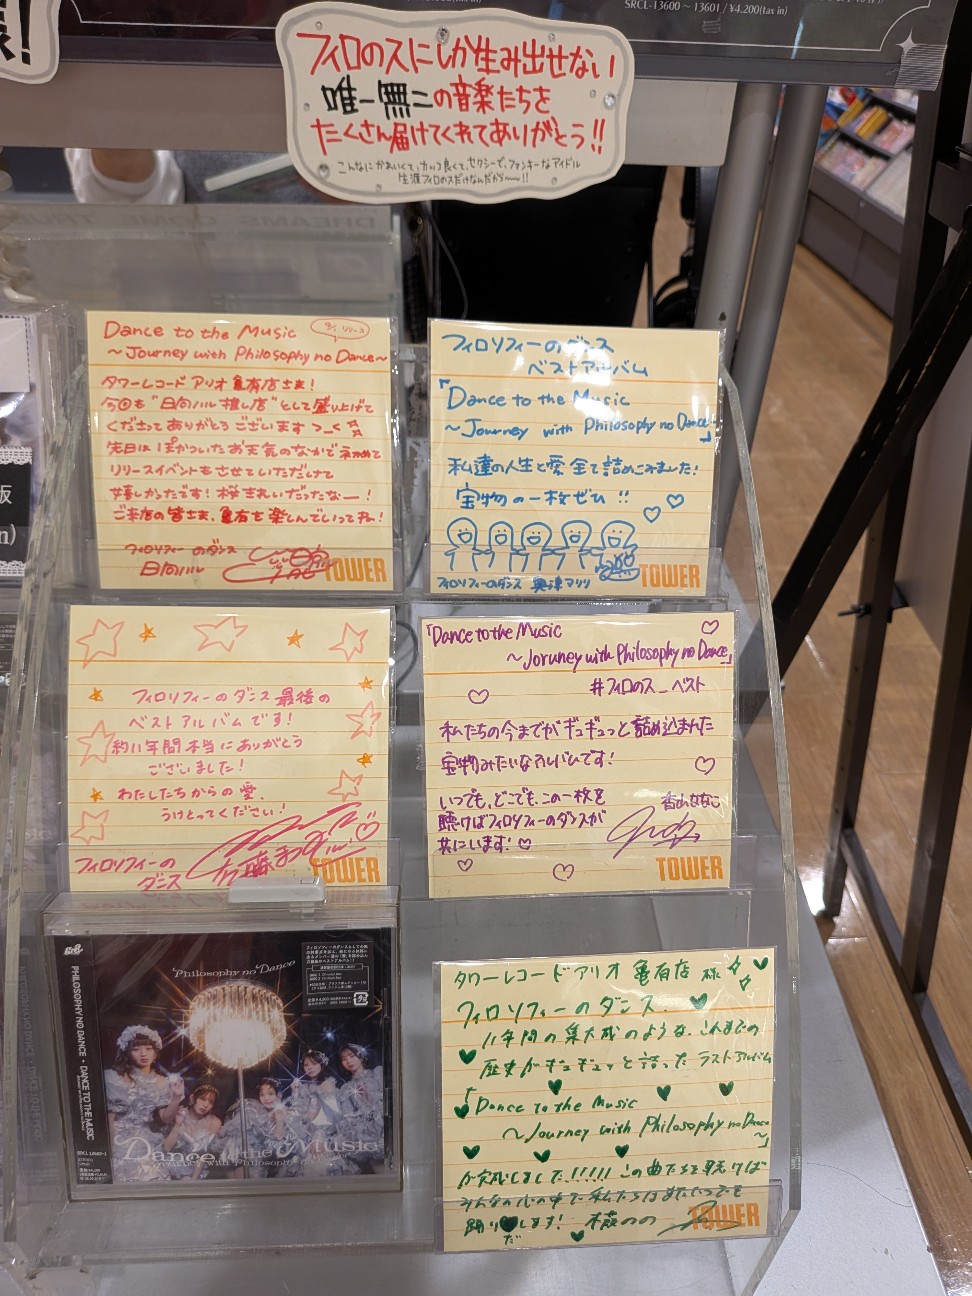 SRCL-13600 ~ 13601 / ¥4,200(tax in)
フィロのスにしか生み出せない
唯一無二の音楽たちを
たくさん届けてくれてありがとう!!
こんなにかわいくて、カッコ良くて、セクシーで、ファンキーなアイドル
生涯フィロのスだけなんだから〜〜!!
Dance to the Music
リリース
~Journey with Philosophy no Dance~
タワーレコード アリオ 亀有店さま!
今回も"日向ハル推し店"として盛り上げて
くださってありがとうございます
先日は ぽかついたお天気のなかで
リリースイベントをさせていただけて
嬉しかったです! 桜きれいだったなー!
ご来店の皆さま、亀有を楽しんでいってネ!
フィロソフィーのダンス
日向ハル
TOWER
フィロソフィーのダンス
ベストアルバム
「Dance to the Music
~Journey with Philosophy no Dance~」
私達の人生と愛 全て詰めこみました!
宝物の一枚ぜひ!!
フィロソフィーのダンス 奥津マリリ
TOWER
フィロソフィーのダンス 最後の
ベストアルバムです!
約11年間本当にありがとう
ございました!
わたしたちからの愛、
うけとってください!
フィロソフィーの
ダンス
TOWER
「Dance to the Music
~Joruney with Philosophy no Dance」
#フィロのス_ベスト
私たちの今までがギュギュっと詰め込まれた
宝物みたいなアルバムです!
いつでも、どこでも、この一枚を
聴けばフィロソフィーのダンスが
共にいます!
香山ななこ
TOWER
Philosophy no Dance
PHILOSOPHY NO DANCE • DANCE TO THE MUSIC
Dance to the Music
Journey with Philosophy no Dance
タワーレコード アリオ 亀有店 様
フィロソフィーのダンス
11年間の集大成のような、これまでの
歴史がギュギュッと詰ったラストアルバム
「Dance to the Music
~Journey with Philosophy no Dance~」
が完成しました!!!!!! この曲たちを聴けば
みんなの心の中で私たちはまたいつでも
踊りだします! 木葭のの
TOWER